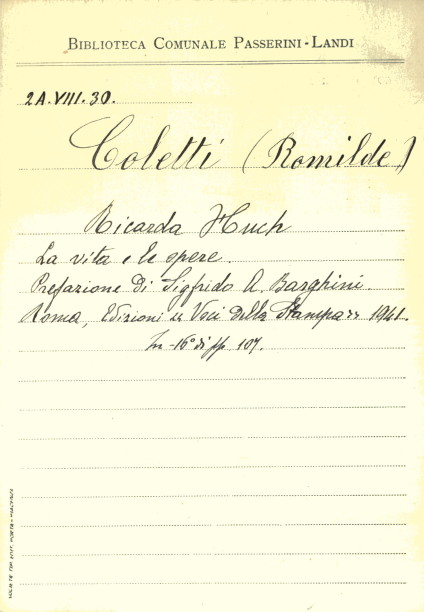 BIBLIOTECA COMUNALE PASSERINI-LANDI
2A.VIII.30.
Coletti (Romilde)
Ricarda Huch
La vita e le opere.
Prefazione di Sigfrido A. Barghini.
Roma, Edizioni « Voci della Stampa » 1941.
In-16° di pp. 107.